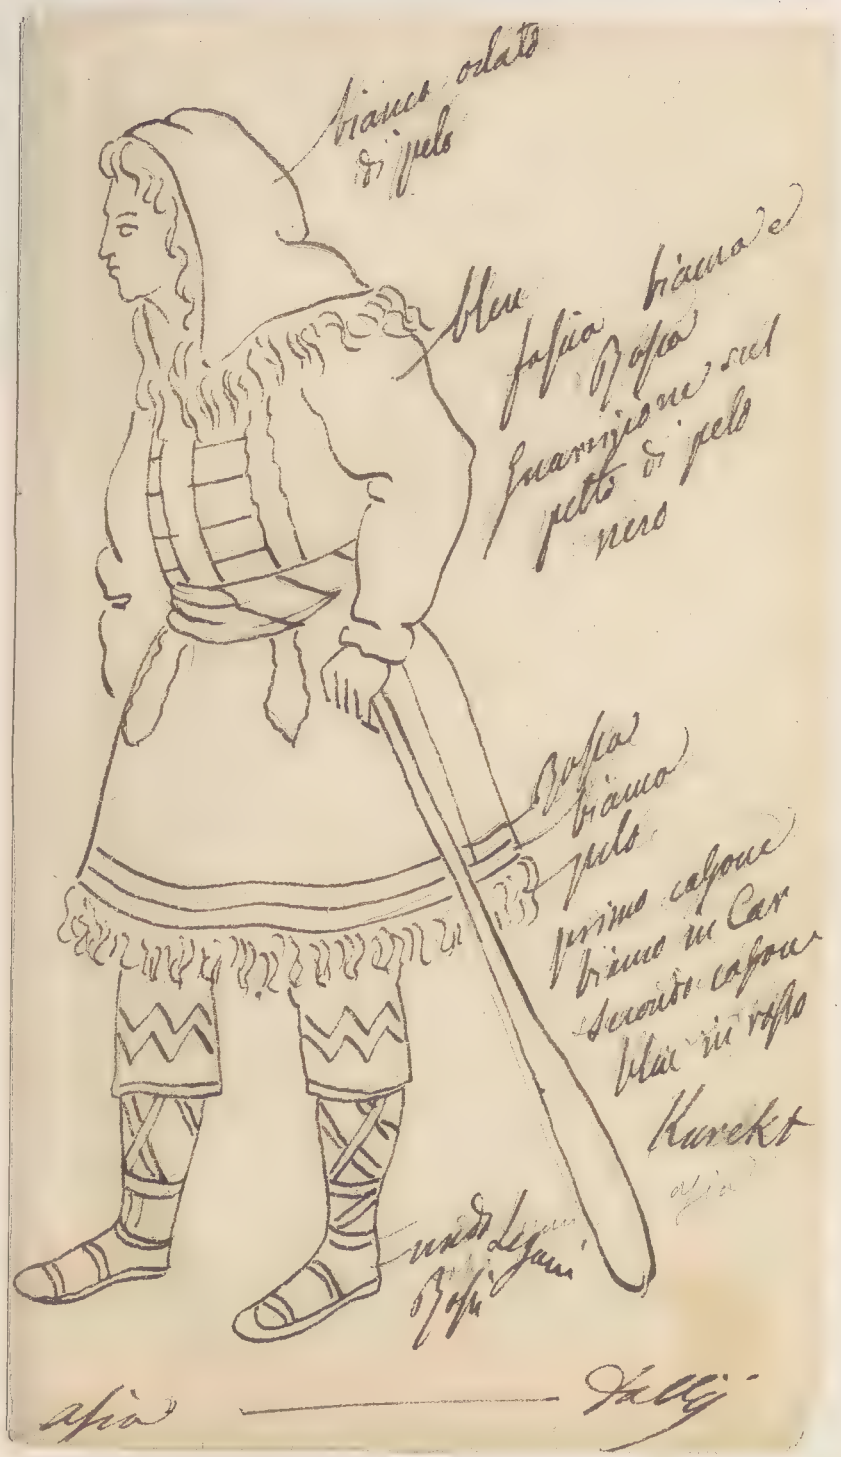 bianco orlato
di pelo
bleu
fascia bianca e
Rossa
Guarnizione sul
petto di pelo
nero
Rossa
bianca
pelo
primo calzone
bianco in Car
secondo calzone
bleu in rosso
Kurekt
asia
nudo Legami
Rossi
asia